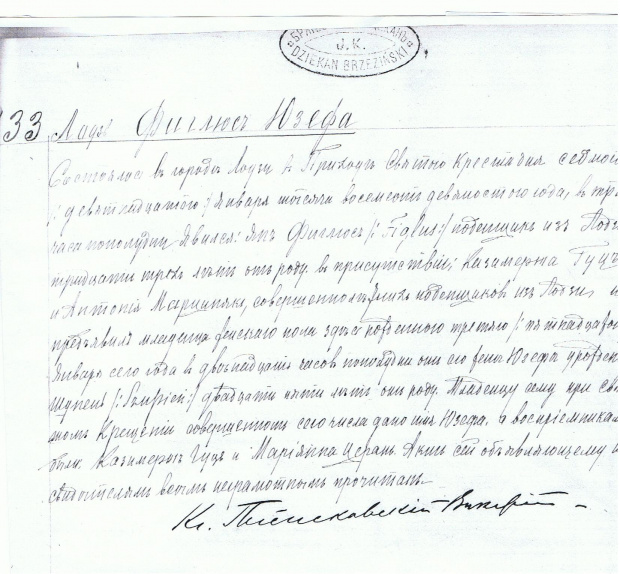 J. K.
DZIEKAN BRZEZIŃSKI
33 Лодзь Фиглюсъ Юзефа
Состоялось въ городѣ Лодзи въ Приходѣ Святого Креста дня седмого
/: девятнадцатого :/ Января тысяча восемсотъ девяностого года, въ три
часа пополудни. Явился: Янъ Фиглюсъ /: Figlus :/ поденщикъ изъ Лодзи
тридцати трехъ лѣтъ отъ роду въ присутствіи, Казимержа Гуцъ
и Антонія совершеннолѣтнихъ поденщиковъ изъ Лодзи, и
предъявилъ младенца женскаго пола здѣсь рожденного третяго /: пятнадцатого
Января сего года въ двѣнадцать часовъ пополудни отъ его жены Юзефы урожден
двадцати пяти лѣтъ отъ роду. Младенцу сему при свя
томъ Крещеніи совершенномъ сего числа дано имя Юзефа, а воспріемниками
были Казимержъ Гуцъ и Маріянна Актъ сей объявляющему и
свидѣтелямъ всѣмъ неграмотнымъ прочитанъ.
Кс.